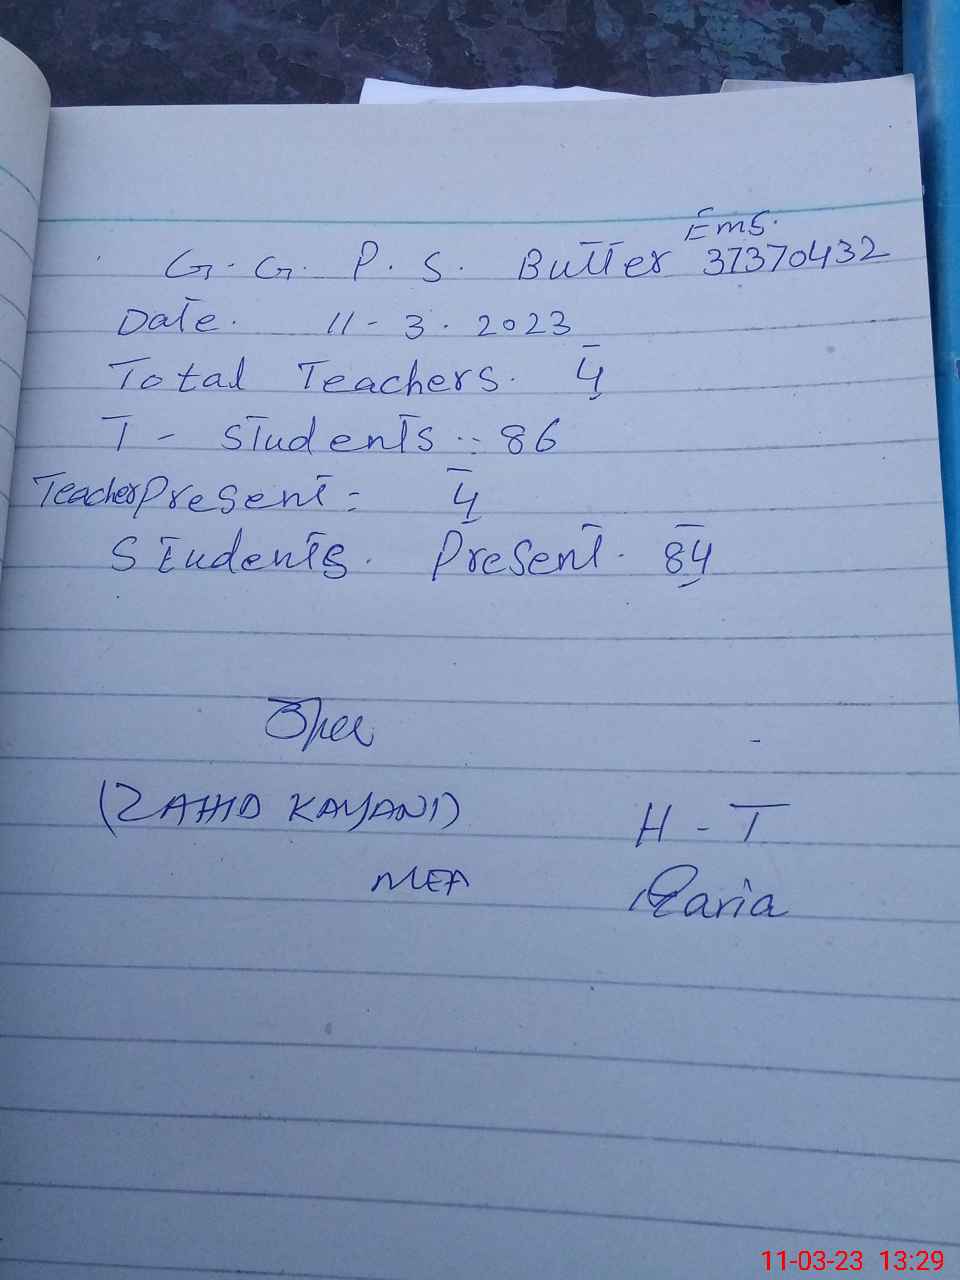 Ems.
G. G. P. S. Butter 37370432
Date. 11 - 3 . 2023
Total Teachers. 4
T - Students :. 86
Teacher Present = 4
Students. Present. 84
(ZAHID KAYANI)
MEA
H - T
11-03-23 13:29